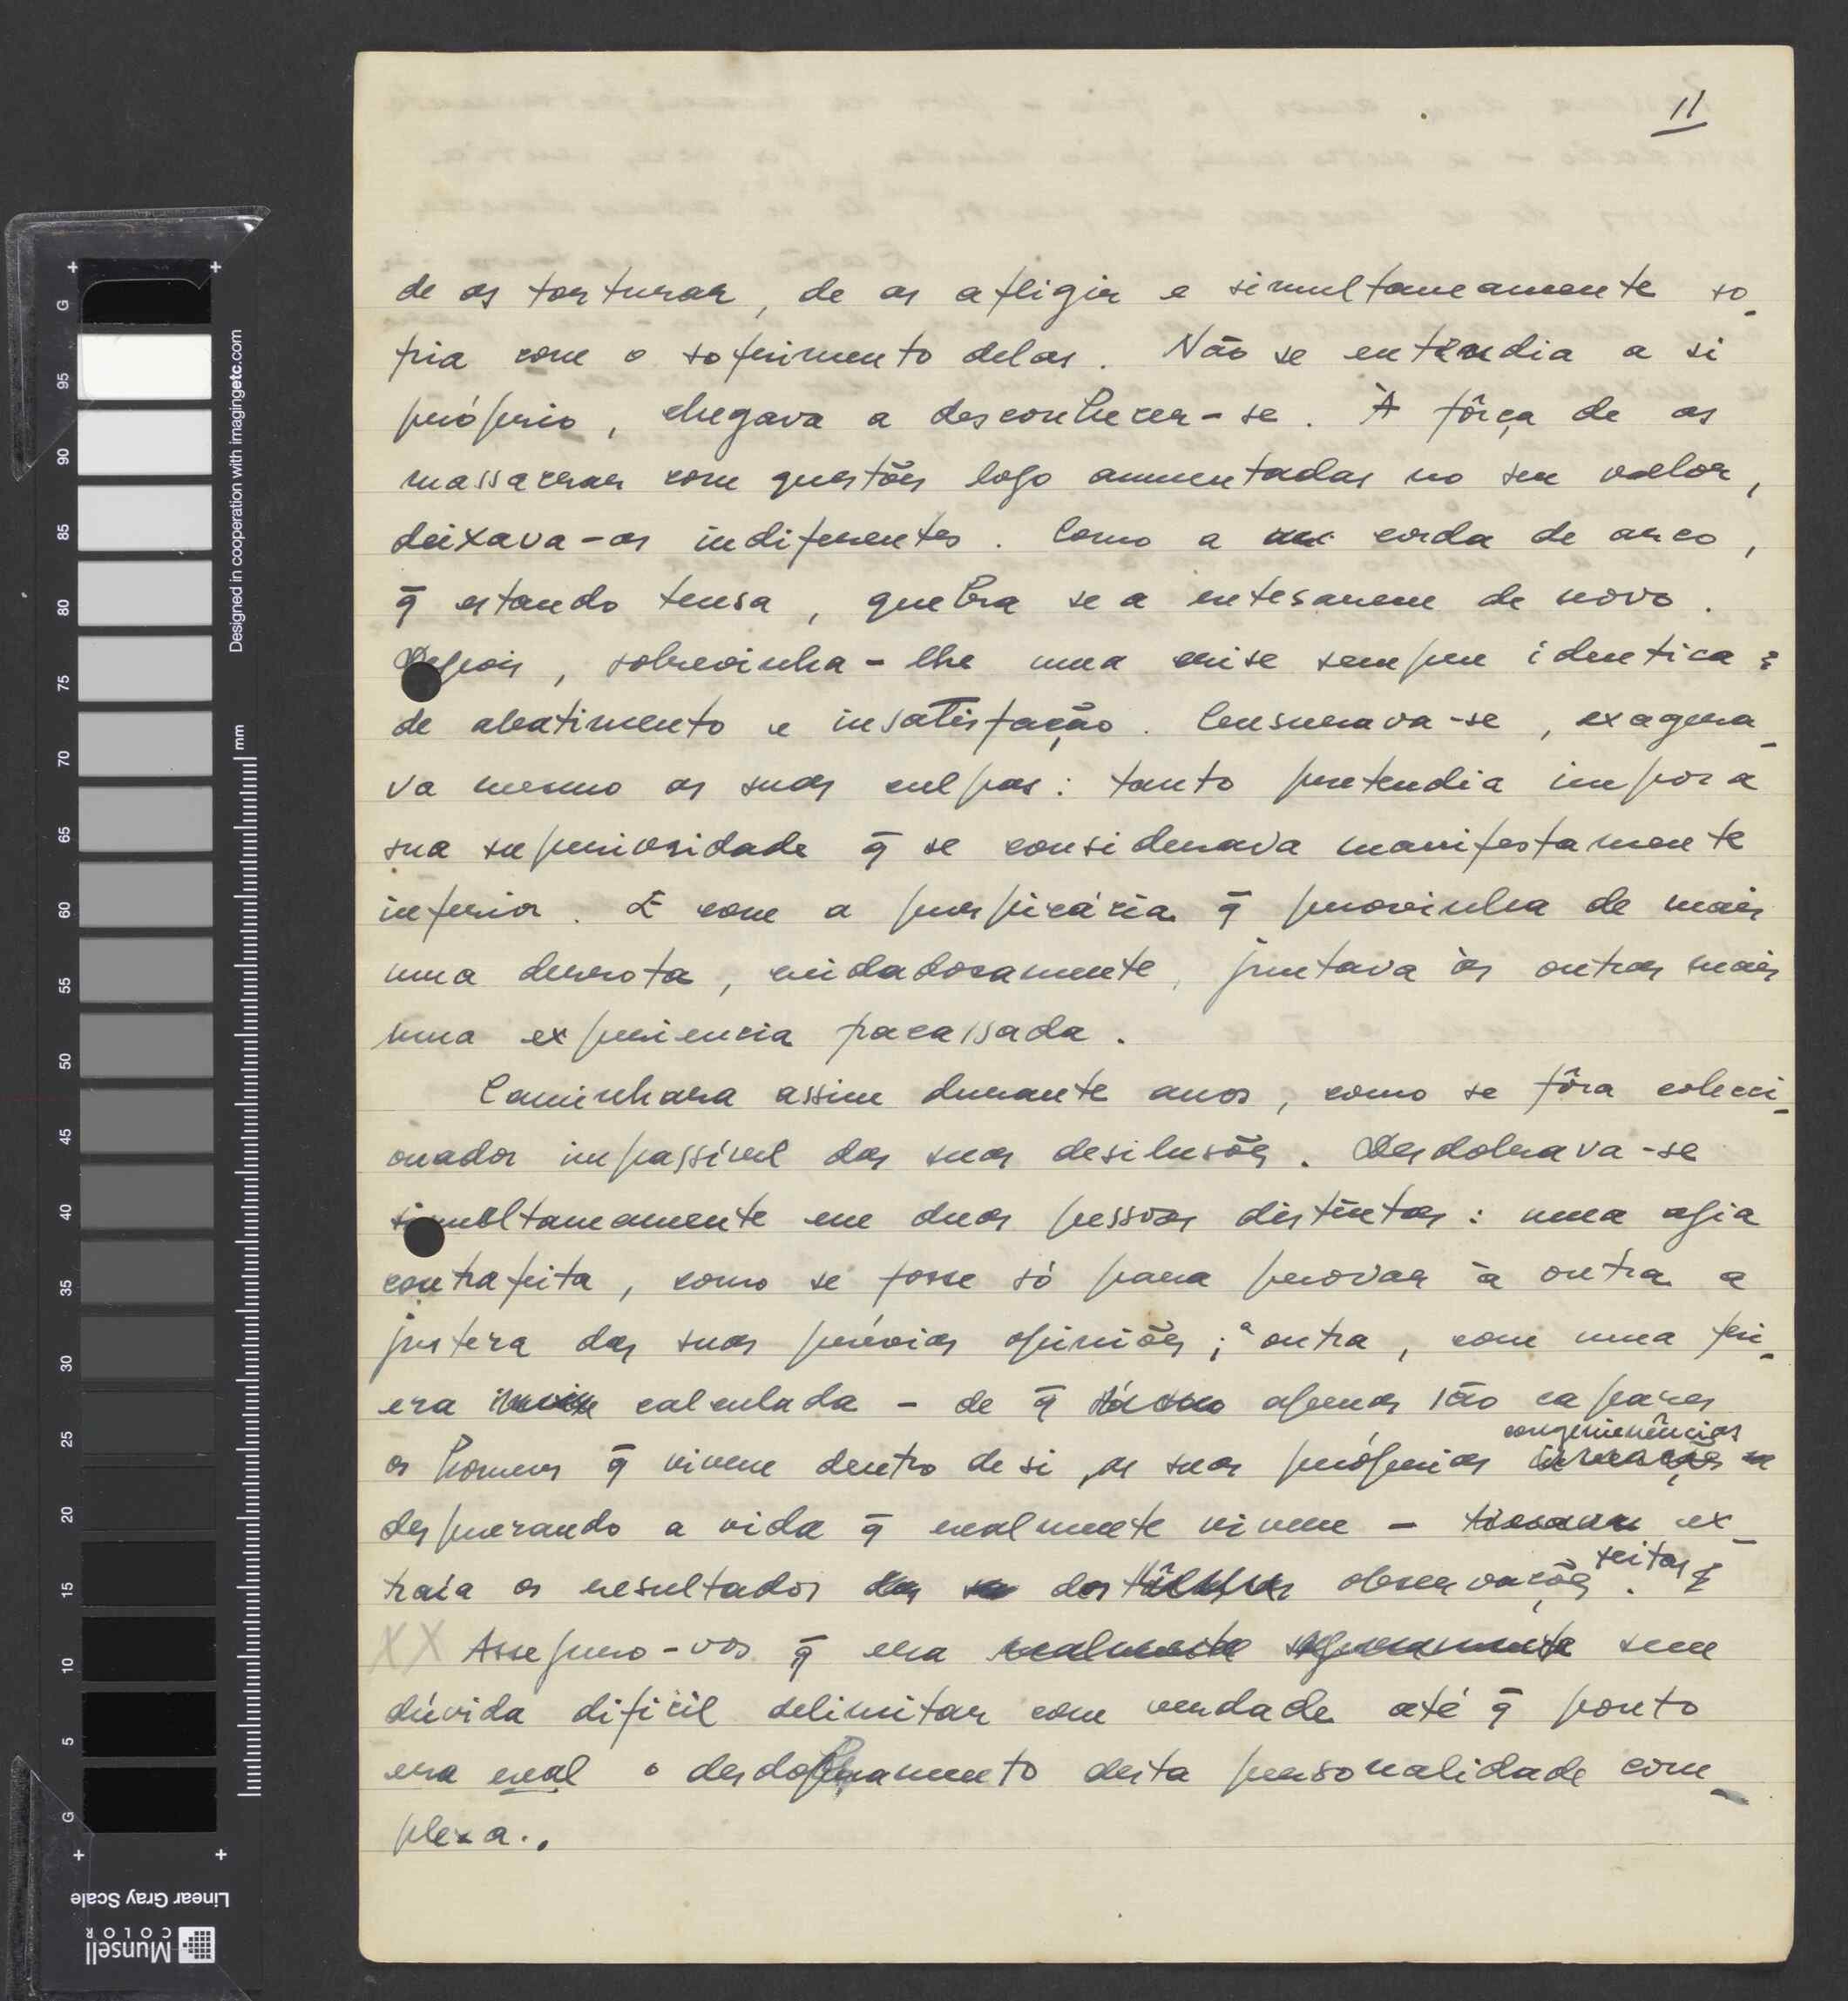 11
de as torturar, de as afligir e simultaneamente so_
fria com o sofrimento delas. Não se entendia a si
próprio, chegava a desconhecer-se. À fôrça de as
massacrar com questões logo aumentadas no seu valor,
deixava-as indiferentes. Como a corda de arco,
q̄ estando tensa, quebra se a entesarem de novo.
Depois, sobrevinha-lhe uma crise sempre identica:
de abatimento e insatisfação. Censurava-se, exagera_
va mesmo as suas culpas: tanto pretendia impor a
sua superioridade q̄ se considerava manifestamente
inferior. E com a perspicácia q̄ provinha de mais
uma derrota, cuidadosamente, juntava às outras mais
uma experiencia fracassada.
Caminhara assim durante anos, como se fôra coleci_
onador impassível das suas desilusões. Desdobrava-se
simultaneamente em duas pessoas distintas: uma agia
contrafeita, como se fosse só para provar à outra a
justeza das suas prévias opiniões; a outra, com uma fri_
eza calculada - de q̄ apenas são capazes
os homens q̄ vivem dentro de si, as suas próprias
congeminências
desprezando a vida q̄ realmente vivem - ex_
traía os resultados das observações feitas.
XX Asseguro-vos q̄ era sem
dúvida difícil delimitar com verdade até q̄ ponto
era real o desdobramento desta personalidade com_
plexa..
Designed in cooperation with imagingetc.com
mm
G 95 90 85 80 75 70 65 60 55 50 45 40 35 30 25 20 15 10 5 G
Linear Gray Scale
Munsell
COLOR